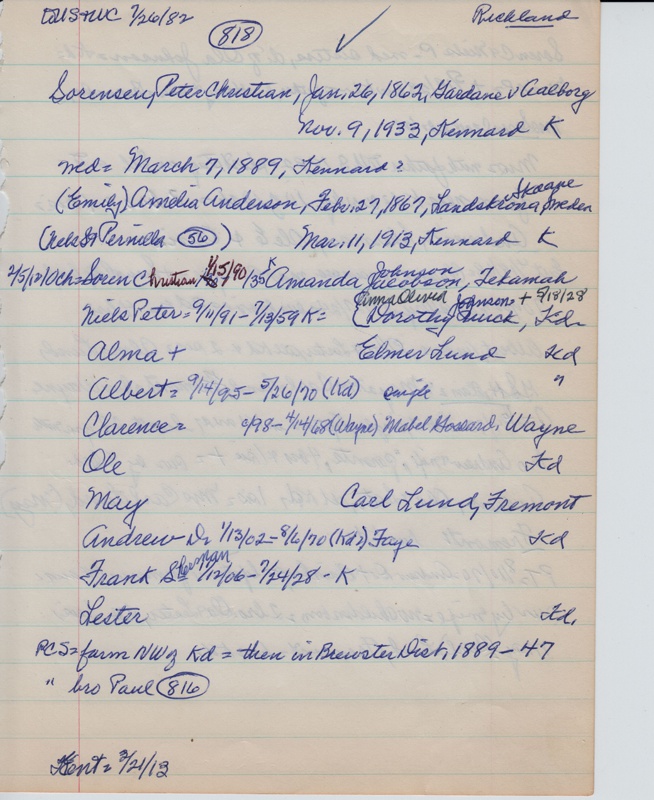 7/26/82 Richland
818
Sorensen, Peter Christian, Jan. 26, 1862, Gardane v Aalborg
Nov. 9, 1933, Kennard K
med = March 7, 1889, Kennard?
(Emily) Amelia Anderson, Feb. 27, 1867, Landskrona Skaane Sweden
(Nels & Pernilla 56) Mar. 11, 1913, Kennard K
och = Soren Christian, 1/15/90 /35 K Amanda Johnson Jacobson, Tekamah
Anna Olivia Johnson + 5/18/28
Niels Peter = 9/11/91 - 7/13/59 K = (Dorothy Quick, Kd
Alma + Elmer Lund Kd
Albert = 9/14/95 - 5/26/70 (Kd) single "
Clarence = 98 - 4/14/68 (Wayne) Mabel Gossard, Wayne
Ole Kd
May Carl Lund, Fremont
Andrew - D. 1/13/02 - 8/6/70 (Kd?) Faye Kd
Frank Sherman 1/12/06 - 7/24/28 - K
Lester Kd.
PCS = farm NW of Kd = then in Brewster Dist, 1889 - 47
" bro Paul 816
Kent = 3/21/13